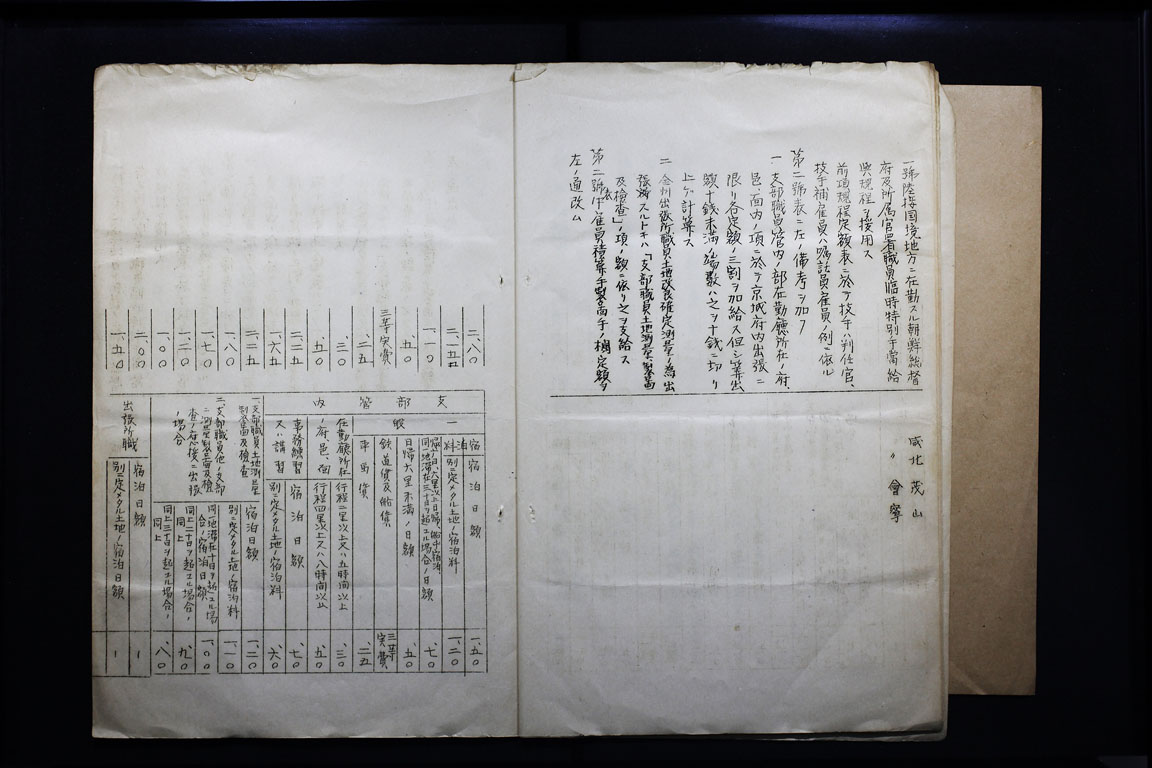 一號陸接国境地方ニ在勤スル朝鮮総督
府及所属官署職員臨時特別手當給
與規程ヲ援用ス
前項規程定額表ニ於テ技手ハ判任官、
技手補雇員ハ嘱託員雇員ノ例ニ依ル
第二號表ニ左ノ備考ヲ加フ
一 支部職員管内ノ部在勤廳所在ノ府、
邑、面内ノ項ニ於テ京城府内出張ニ
限リ各定額ノ三割ヲ加給ス但シ算出
額十錢未満ノ端数ハ之ヲ十錢ニ切リ
上ゲ計算ス
二 金州出張所職員土地改良確定測量ノ為出
張スルトキハ「支部職員土地測量、製圖
及檢査」ノ項ノ額ニ依リ之ヲ支給ス
第二號表中雇員積算手製圖手ノ欄定額ヲ
左ノ通改ム
咸北 茂山
〃 會寧
二、八〇
二、五五
一、一〇
、五〇
三等実費
、二五
、三〇
、五〇
一、六五
二、二五
一、八〇
一、七〇
一、二〇
一、〇〇
二、〇〇
一、五〇
支部管内
一般
宿泊料
宿泊日額
別ニ定メタル土地ノ宿泊料
同一地滞在三十日ヲ超ユル場合ノ日額
日帰六里未満ノ日額
鉄道賃及船賃
車馬賃
在勤廳所在ノ府、邑、面
行程二里以上又ハ五時間以上
行程四里以上又ハ八時間以上
事務練習又ハ講習
宿泊日額
別ニ定メタル土地ノ宿泊料
一、支部職員土地測量製圖及檢査
宿泊日額
別ニ定メタル土地ノ宿泊料
二、支部職員他ノ支部ニ測量製圖及檢査ノ應援ニ出張ノ場合
同一地滞在十日ヲ超ユル場合ノ宿泊日額
同上二十日ヲ超ユル場合ノ同上
同上三十日ヲ超ユル場合ノ同上
出張所職
宿泊日額
別ニ定メタル土地ノ宿泊日額
一、五〇
一、二〇
、七〇
、五〇
三等実費
、二五
、三〇
、五〇
、七〇
、六〇
一、二〇
一、一〇
一、〇〇
、九〇
、八〇
ー
ー